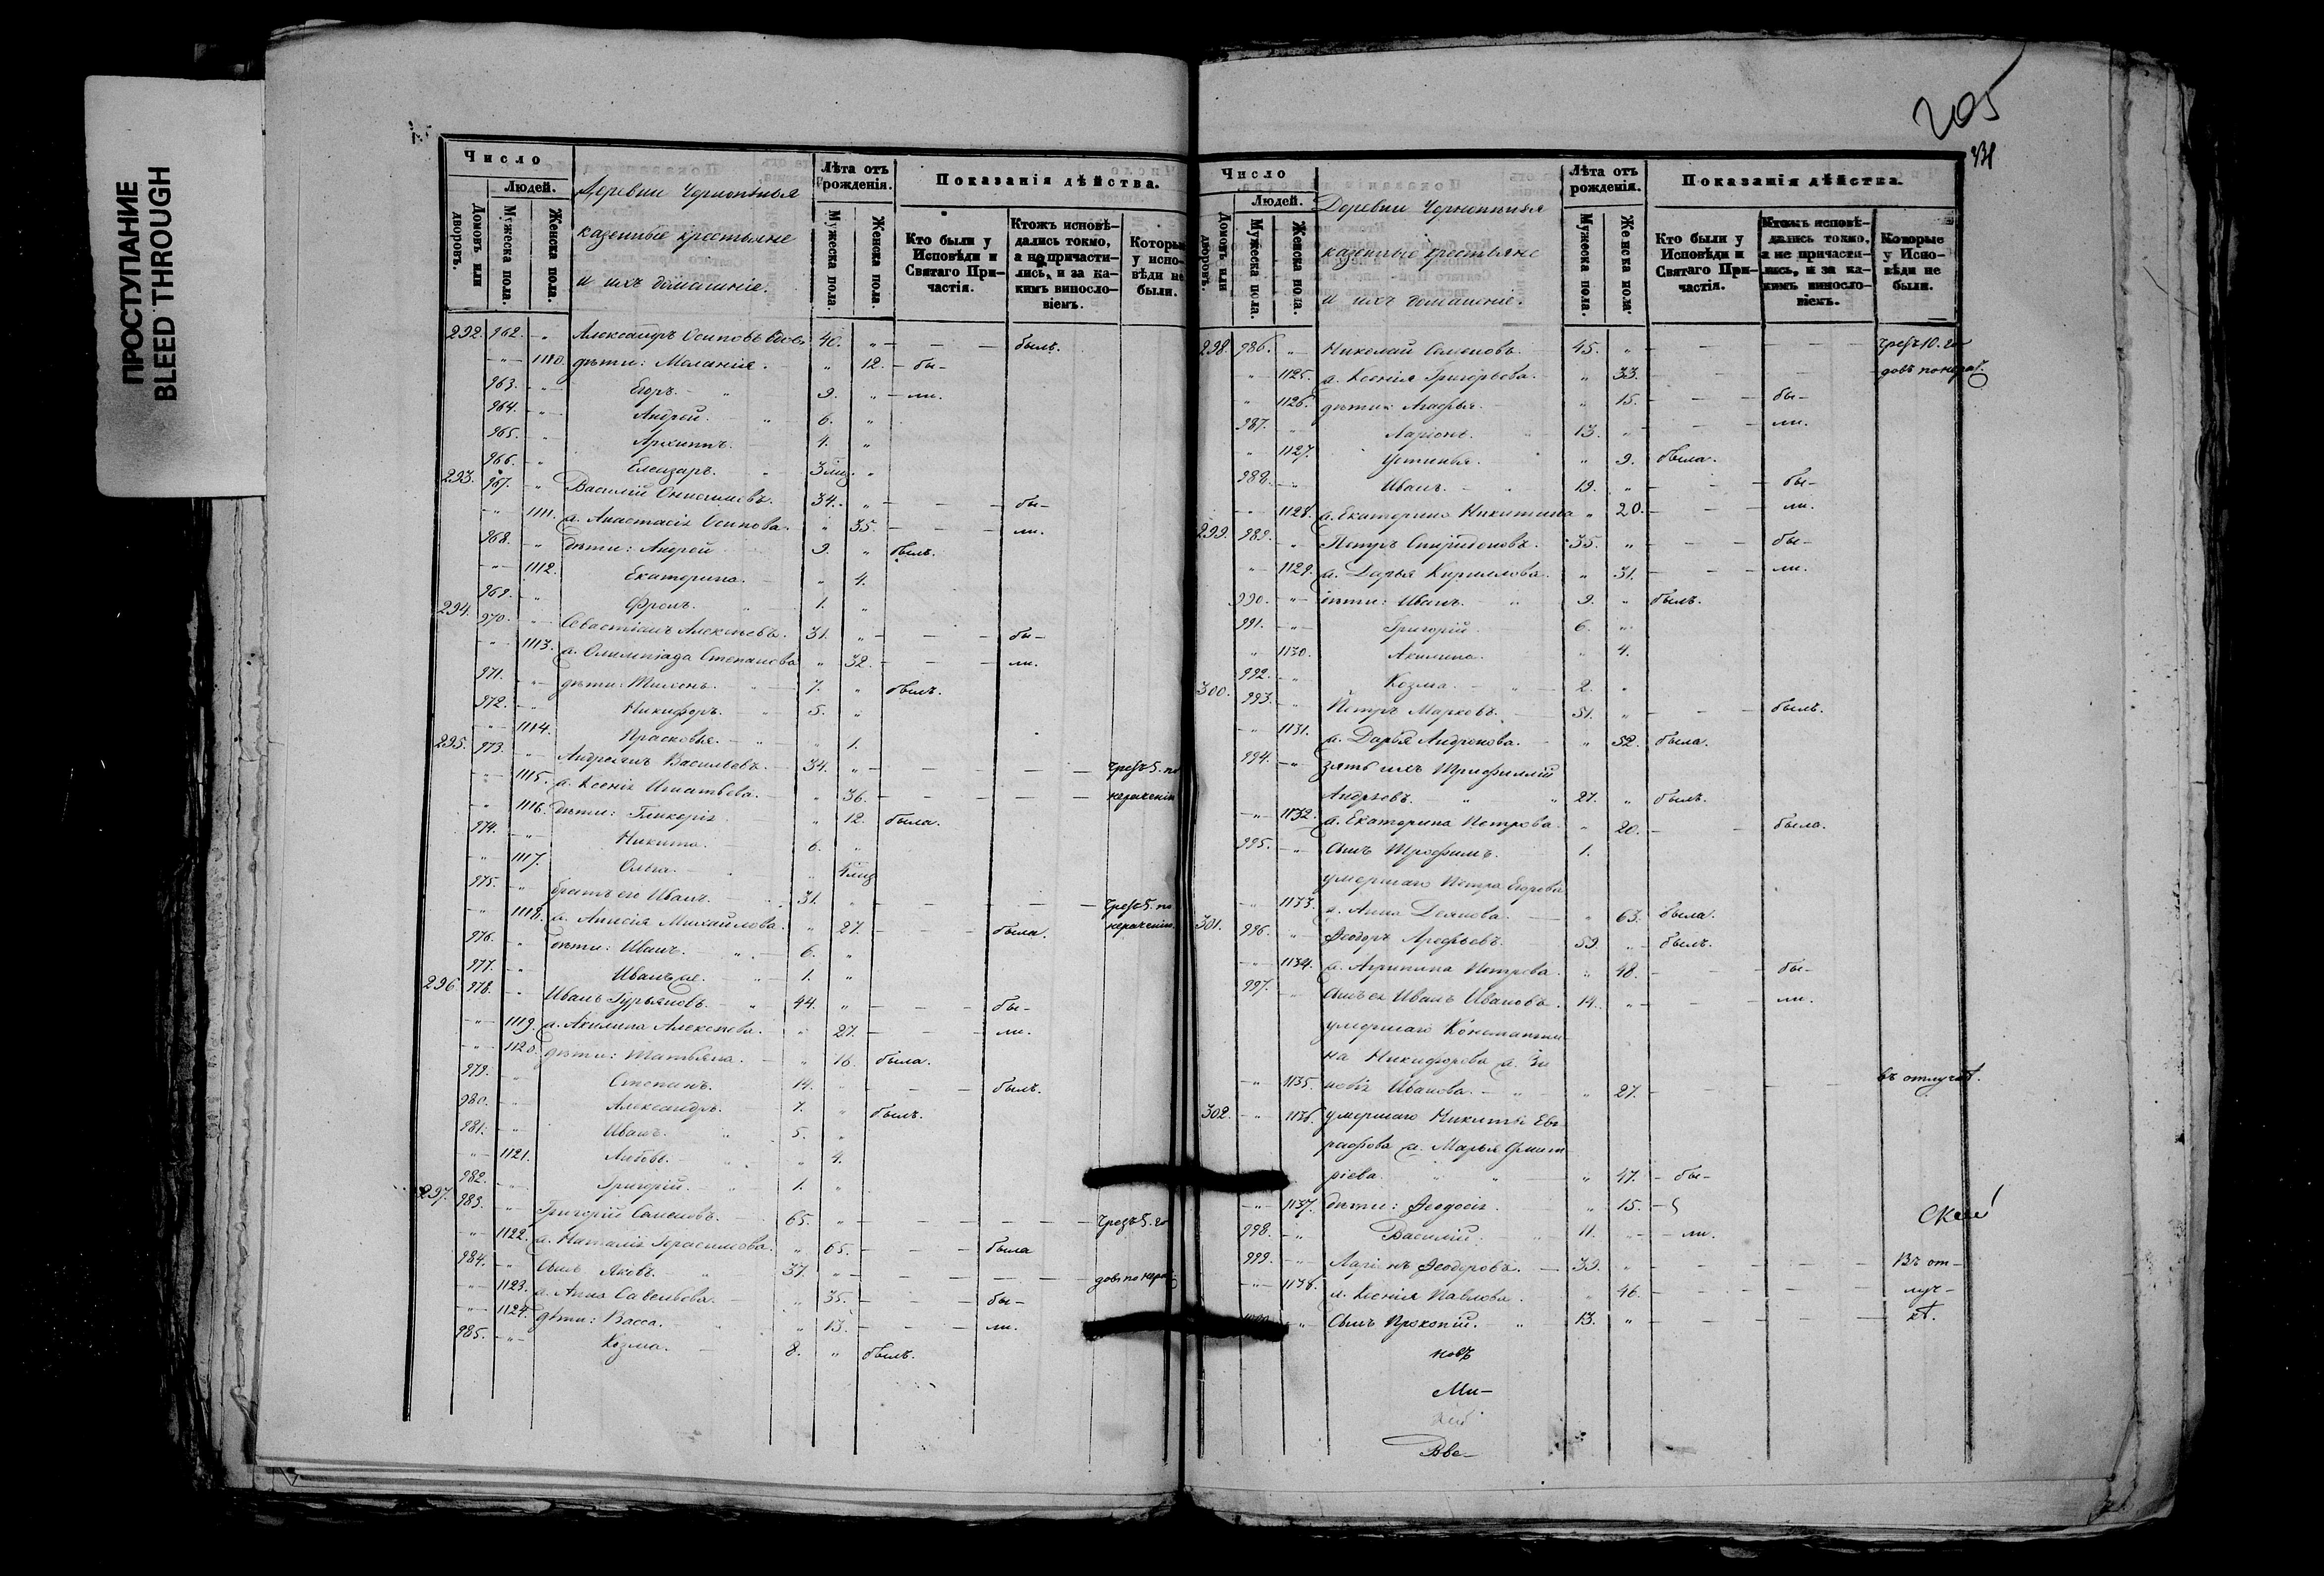 ПРОСТУПАНИЕ
BLEED THROUGH
Число
Людей.
Домовъ или дворовъ.
Мужеска пола.
Женска пола.
Деревни
казенные крестьяне
и ихъ домашніе.
Лѣта отъ рожденія.
Мужеска пола.
Женска пола.
Показанія дѣйства.
Кто были у Исповѣди и Святаго Причастія.
Ктожъ исповѣдались токмо, а не причастились, и за какимъ винословіемъ.
Которые у исповѣди не были.
292. 962. " Александръ Осиповъ 40. " былъ.
" 1110. дѣти: Меланія. " 12. бы-
963. " Егоръ. 9. " ли.
964. " Андрей. 6. "
965. " Архиппъ. 4. "
966. " Елеазаръ. "
293. 967. " Василій Онисимовъ. 34. " бы-
" 1111. ж. Анастасія Осипова. " 35. ли.
968. " дѣти: Андрей 9. " былъ.
" 1112. Екатерина. " 4.
969. " Фролъ. 1. "
294. 970. " Севастіанъ Алексѣевъ. 31. " бы-
" 1113. ж. Олимпіада Степанова " 32. ли.
971. " дѣти: Тихонъ. 7. " былъ.
972. " Никифоръ. 5. "
" 1114. Прасковья. " 1.
295. 973. " Андреянъ Васильевъ. 34. " чрезъ 5. по
" 1115. ж. Ксенія Игнатьева. " 36. нераченію
" 1116. дѣти: Гликерія " 12. была.
974. " Никита. 6. "
" 1117. Ольга. "
975. " братъ его Иванъ. 31. " чрезъ 5. по
" 1118. ж. Анисія Михайлова. " 27. была. нераченію
976. " дѣти: Иванъ. 6. "
977. " Иванъ же. 1. "
296. 978. " Иванъ Гурьяновъ. 44. " бы-
" 1119. ж. Акилина Алексѣева. " 27. ли.
" 1120. дѣти: Татьяна. " 16. была.
979. " Степанъ. 14. " былъ.
980. " Александръ. 7. " былъ.
981. " Иванъ. 5. "
" 1121. Любовь. " 4.
982. " Григорій. 1. "
297. 983. " Григорій Семеновъ. 65. " чрезъ 5. го
" 1122. ж. Наталія Герасимова. " 65. была
984. " сынъ Яковъ. 37. " довъ по нерач.
" 1123. ж. Анна Савельева. " 35. бы-
" 1124. дѣти: Васса. " 13. ли.
985. " Козма. 8. " былъ.
205
Число
Людей.
Домовъ или дворовъ.
Мужеска пола.
Женска пола.
Деревни
казенные крестьяне
и ихъ домашніе.
Лѣта отъ рожденія.
Мужеска пола.
Женска пола.
Показанія дѣйства.
Кто были у Исповѣди и Святаго Причастія.
Ктожъ исповѣдались токмо, а не причастились, и за какимъ винословіемъ.
Которые у Исповѣди не были.
298. 986. " Николай Семеновъ. 45. " чрезъ 10. го
" 1125. ж. Ксенія Григорьева. " 33. довъ по нерач.
" 1126. дѣти: Агафья. " 15. бы-
987. " Ларіонъ. 13. " ли.
" 1127. Устинья. " 9. была.
988. " Иванъ. 19. " бы-
" 1128. ж. Екатерина Никитина " 20. ли.
299. 989. " Петръ Спиридоновъ. 35. " бы-
" 1129. ж. Дарья Кириллова. " 31. ли.
990. " дѣти: Иванъ. 9. " былъ.
991. " Григорій. 6. "
" 1130. Акилина. " 4.
992. " Козма. 2. "
300. 993. " Петръ Марковъ. 51. " былъ.
" 1131. ж. Дарья Андронова. " 52. была.
994. " зять ихъ Трифиллій
Андреевъ. 27. " былъ.
" 1132. ж. Екатерина Петрова. " 20. была.
995. " сынъ Трофимъ. 1.
умершаго Петра Егорова
" 1133. ж. Анна " 63. была.
301. 996. " Феодоръ Арефьевъ. 59. " былъ.
" 1134. ж. Агрипина Петрова. " 48. бы-
997. " сынъ ея Иванъ Ивановъ. 14. " ли.
умершаго Константи
на Никифорова ж. Зи
" 1135. новія Иванова. " 27. въ отлучкѣ.
302. " 1136. умершаго Никиты Ев
графова ж. Марья Дмит
ріева. " 47. бы-
" 1137. дѣти: Феодосія. " 15.
998. " Василій. 11. " ли.
999. " Ларіонъ Феодоровъ. 39. " Въ от-
" 1138. ж. Ксенія Павлова. " 46. луч-
" сынъ Прокопій. 13. " кѣ.
новъ
Ми-
Вве-